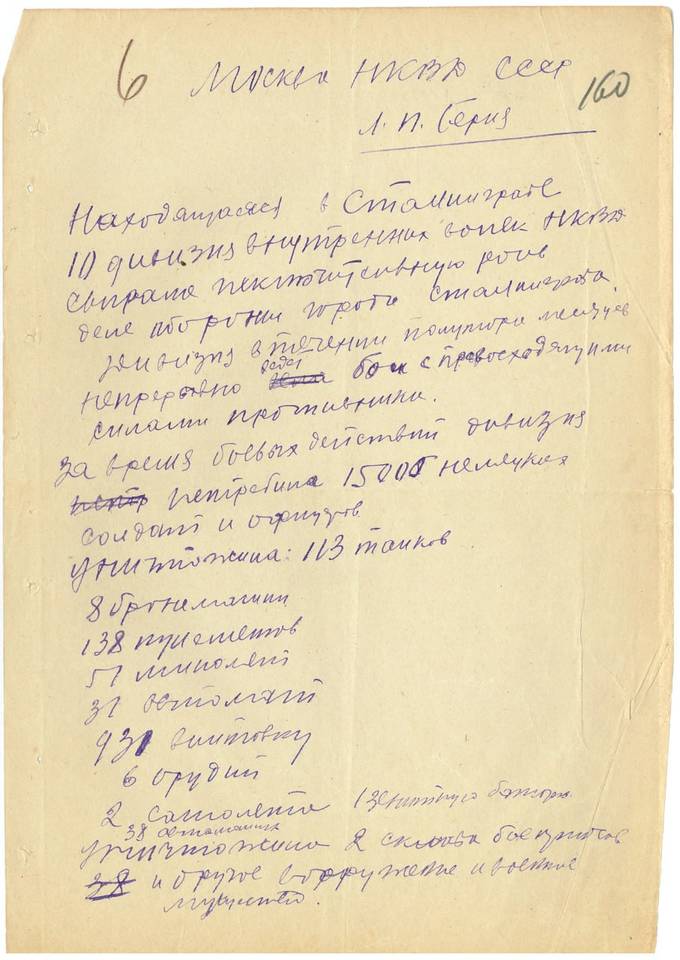 6
Москва НКВД СССР
160
Л. П. Берия
Находящаяся в Сталинграде
10 дивизия внутренних войск НКВД
сыграла исключительную роль
деле обороны города Сталинграда.
дивизия в течении полутора месяцев
непрерывно ведет бои с превосходящими
силами противника.
За время боевых действий дивизия
истр истребила 15000 немецких
солдат и офицеров
уничтожила: 113 танков
8 бронемашин
138 пулеметов
51 миномет
31 автомат
931 винтовку
6 орудий
2 самолета 1 зенитную батарею
38 автомашин
уничтожила 2 склада боеприпасов
38 и другое вооружение и военное
имущество.